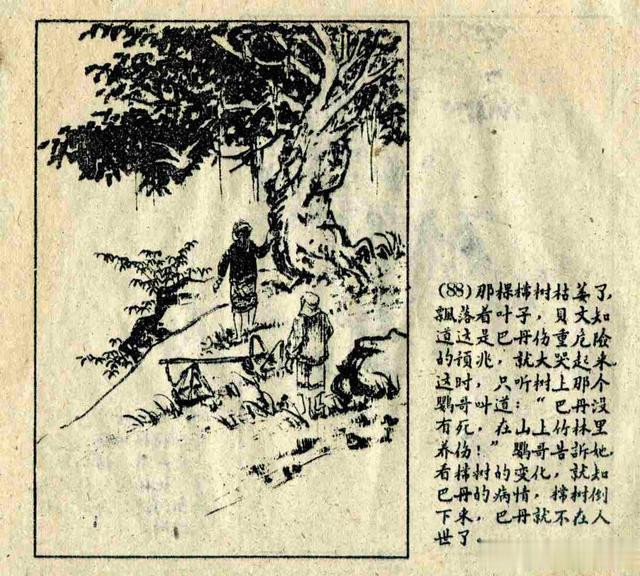 (88)那棵樟树枯萎了,
飄落着叶子，貝文知
道这是巴丹伤重危險
的預兆，就大哭起来。
这时，只听树上那个
鹦哥叫道：“巴丹没
有死，在山上竹林里
养伤！”鹦哥告訴她，
看樟树的变化，就知
巴丹的病情，樟树倒
下来，巴丹就不在人
世了。